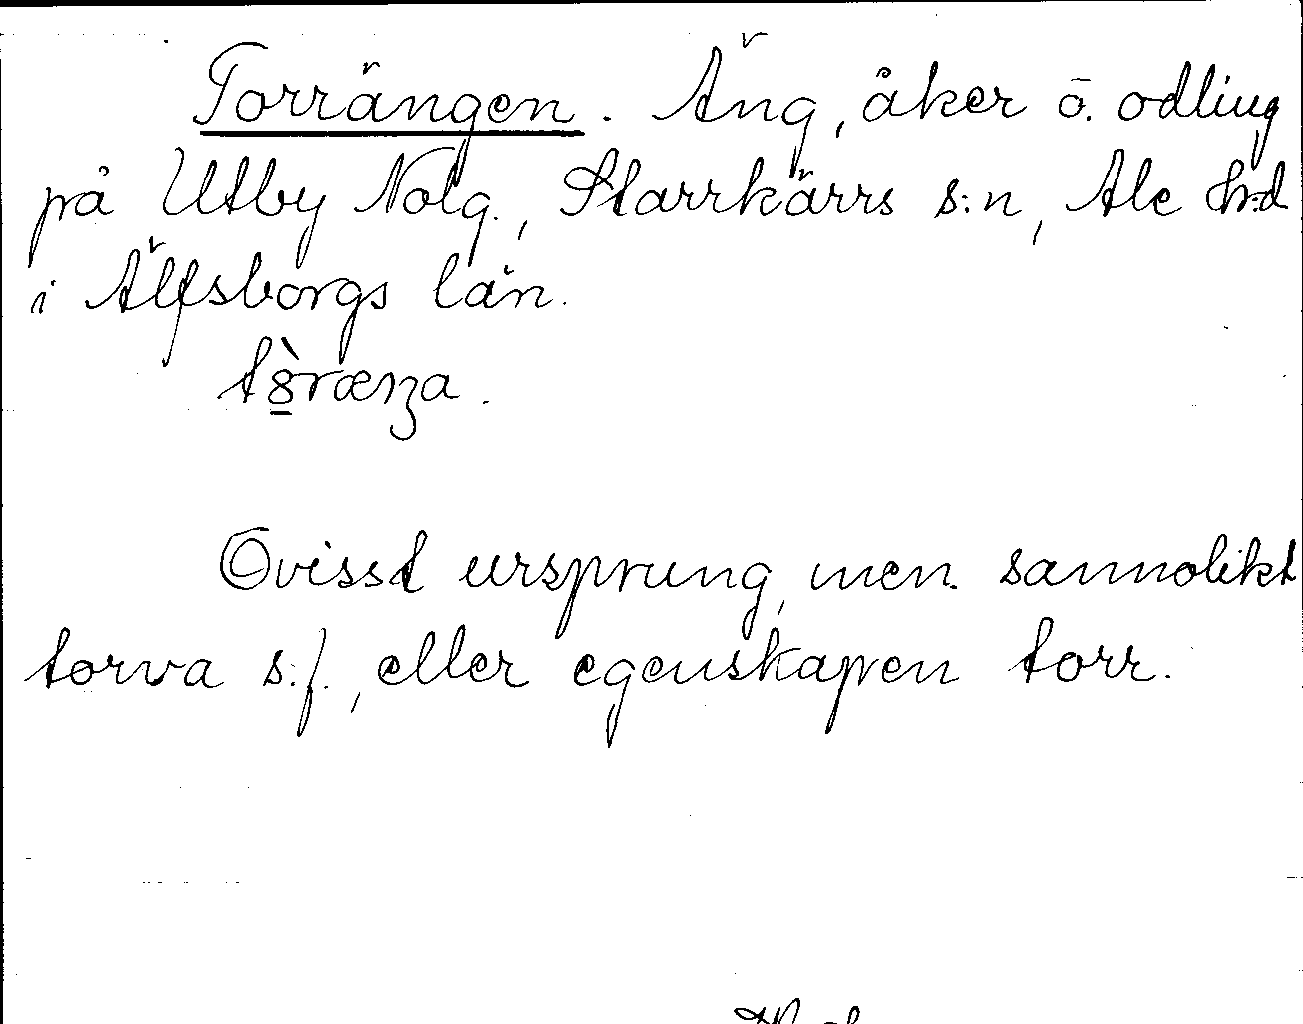 Torrängen. Äng, åker ö. odling
på Utby Nolg., Starrkärrs s:n, Ale h:d
i Älfsborgs län.
tȣ̀ræŋa.
Ovisst ursprung, men sannolikt
torva s.f., eller egenskapen torr.